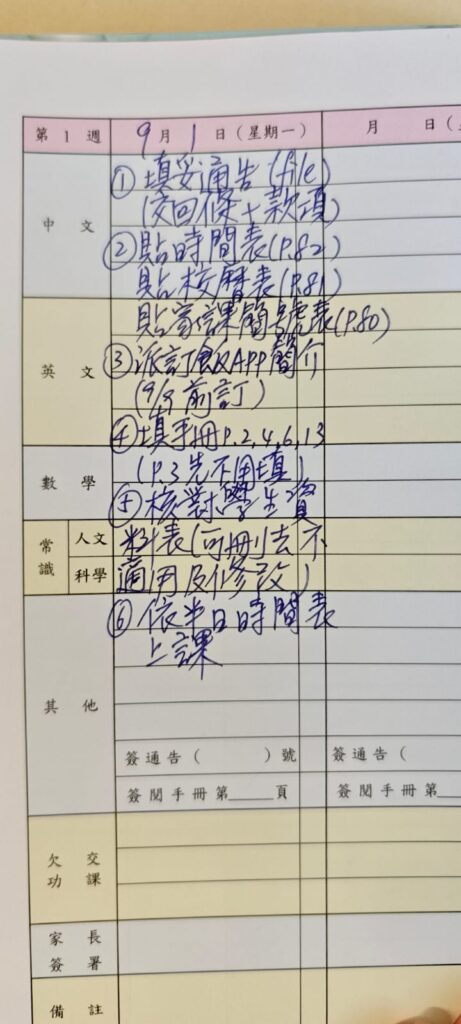 第 1 週 9月 1 日(星期一) 月 日(
中文
① 填妥通告(file)
(交回條+款項)
② 貼時間表(P.82)
貼校曆表(P.81)
貼家課簡號表(P.80)
英文
③ 派訂飯APP簡介
(9/9前訂)
④ 填手冊P.2,4,6,13
數學
(P.3先不用填)
⑤ 核對學生資
常識 人文
料表(可刪去不
科學
適用及修改)
⑥ 依半日時間表
上課
其他
簽通告( )號 簽通告(
簽閱手冊第____頁 簽閱手冊第
欠交功課
家長簽署
備註